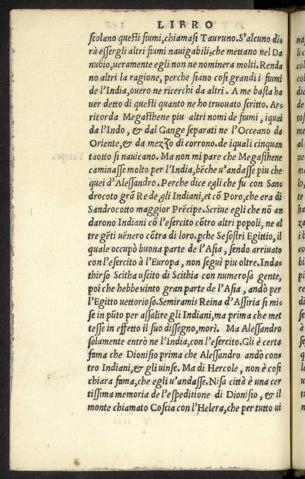 LIBRO
scolano questi fiumi, chiamasi Tauruno. S'alcuno di
rà essergli altri fiumi nauigabili, che mettano nel Da
nubio, ueramente egli non ne nominera molti. Renda
no altri la ragione, perche siano cosi grandi i fiumi
de l'India, ouero ne ricerchi da altri. A me basta ha
uer detto di questi quanto ne ho truouato scritto. Ar
ricorda Megasthene piu altri nomi de fiumi, iquai
da l'Indo, & dal Gange separati ne l'Occeano da
Oriente, & da mezzo di corrono. de iquali cinquan
taotto si nauicano. Ma non mi pare che Megasthene
caminasse molto per l'India, bēche u'andasse piu che
quei d'Alessandro. Perche dice egli che fu con San
drocoto grā Re de gli Indiani, et cō Poro, che era di
Sandrocotto maggior Prēcipe. Scriue egli che nō an
darono Indiani cō l'esercito cōtro altri popoli, ne al
tre gēti uēnero cōtra di loro. pche Sesostri Egittio, il
quale occupò buona parte de l'Asia, sendo arriuato
con l'esercito à l'Europa, non seguì piu oltre. Inda-
thirso Scitha uscito di Scithia con numerosa gente,
poi che hebbe uinto gran parte de l'Asia, andò per
l'Egitto uettorioso. Semiramis Reina d'Assiria si mi-
se in pūto per assalire gli Indiani, ma prima che met
tesse in effetto il suo dissegno, morì. Ma Alessandro
solamente entrò ne l'India, con l'esercito. Gli è certa
fama che Dionisio prima che Alessandro andò con-
tro Indiani, & gli uinse. Ma di Hercole, non è cosi
chiara fama, che egli u'andasse. Nisa città è una cer
tissima memoria de l'espeditione di Dionisio, & il
monte chiamato Coscia con l'Helera, che per tutto ui